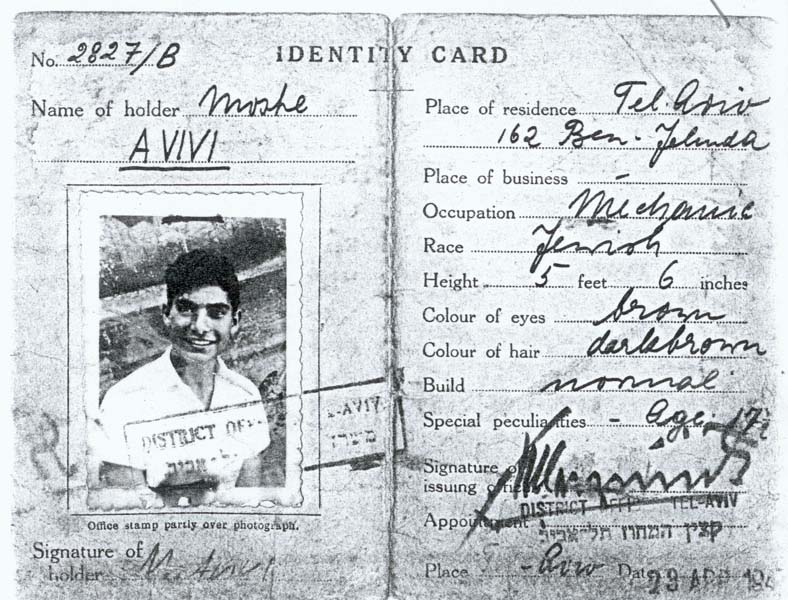 No. 2827/B
IDENTITY CARD
Name of holder Moshe
AVIVI
DISTRICT OFF
-AVIV
Office stamp partly over photograph.
Signature of
holder M. Avivi
Place of residence Tel. Aviv
162 Ben-Jehuda
Place of business -
Occupation Mechanic
Race Jewish
Height 5 feet 6 inches
Colour of eyes brown
Colour of hair darkbrown
Build normal
Special peculiarities - Age: 17½
Signature of
issuing officer
DISTRICT OFF TEL-AVIV
Appointment קצין המחוז תל-אביב
Place -Aviv Date 29 APR 194